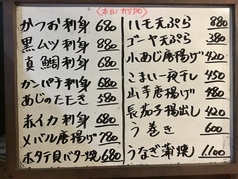 〈本日の特別〉
かつお刺身 680
黒ムツ刺身 680
真鯛刺身 680
カンパチ刺身 680
あじのたたき 580
ホイカ刺身 680
メバル唐揚げ 780
ホタテ貝バター焼 680
ハモ天ぷら 880
ゴーヤ天ぷら 380
小あじ唐揚げ 420
こまい一夜干し 450
山芋唐揚げ 480
長茄子揚出し 420
う巻き 600
うなぎ蒲焼 1,100